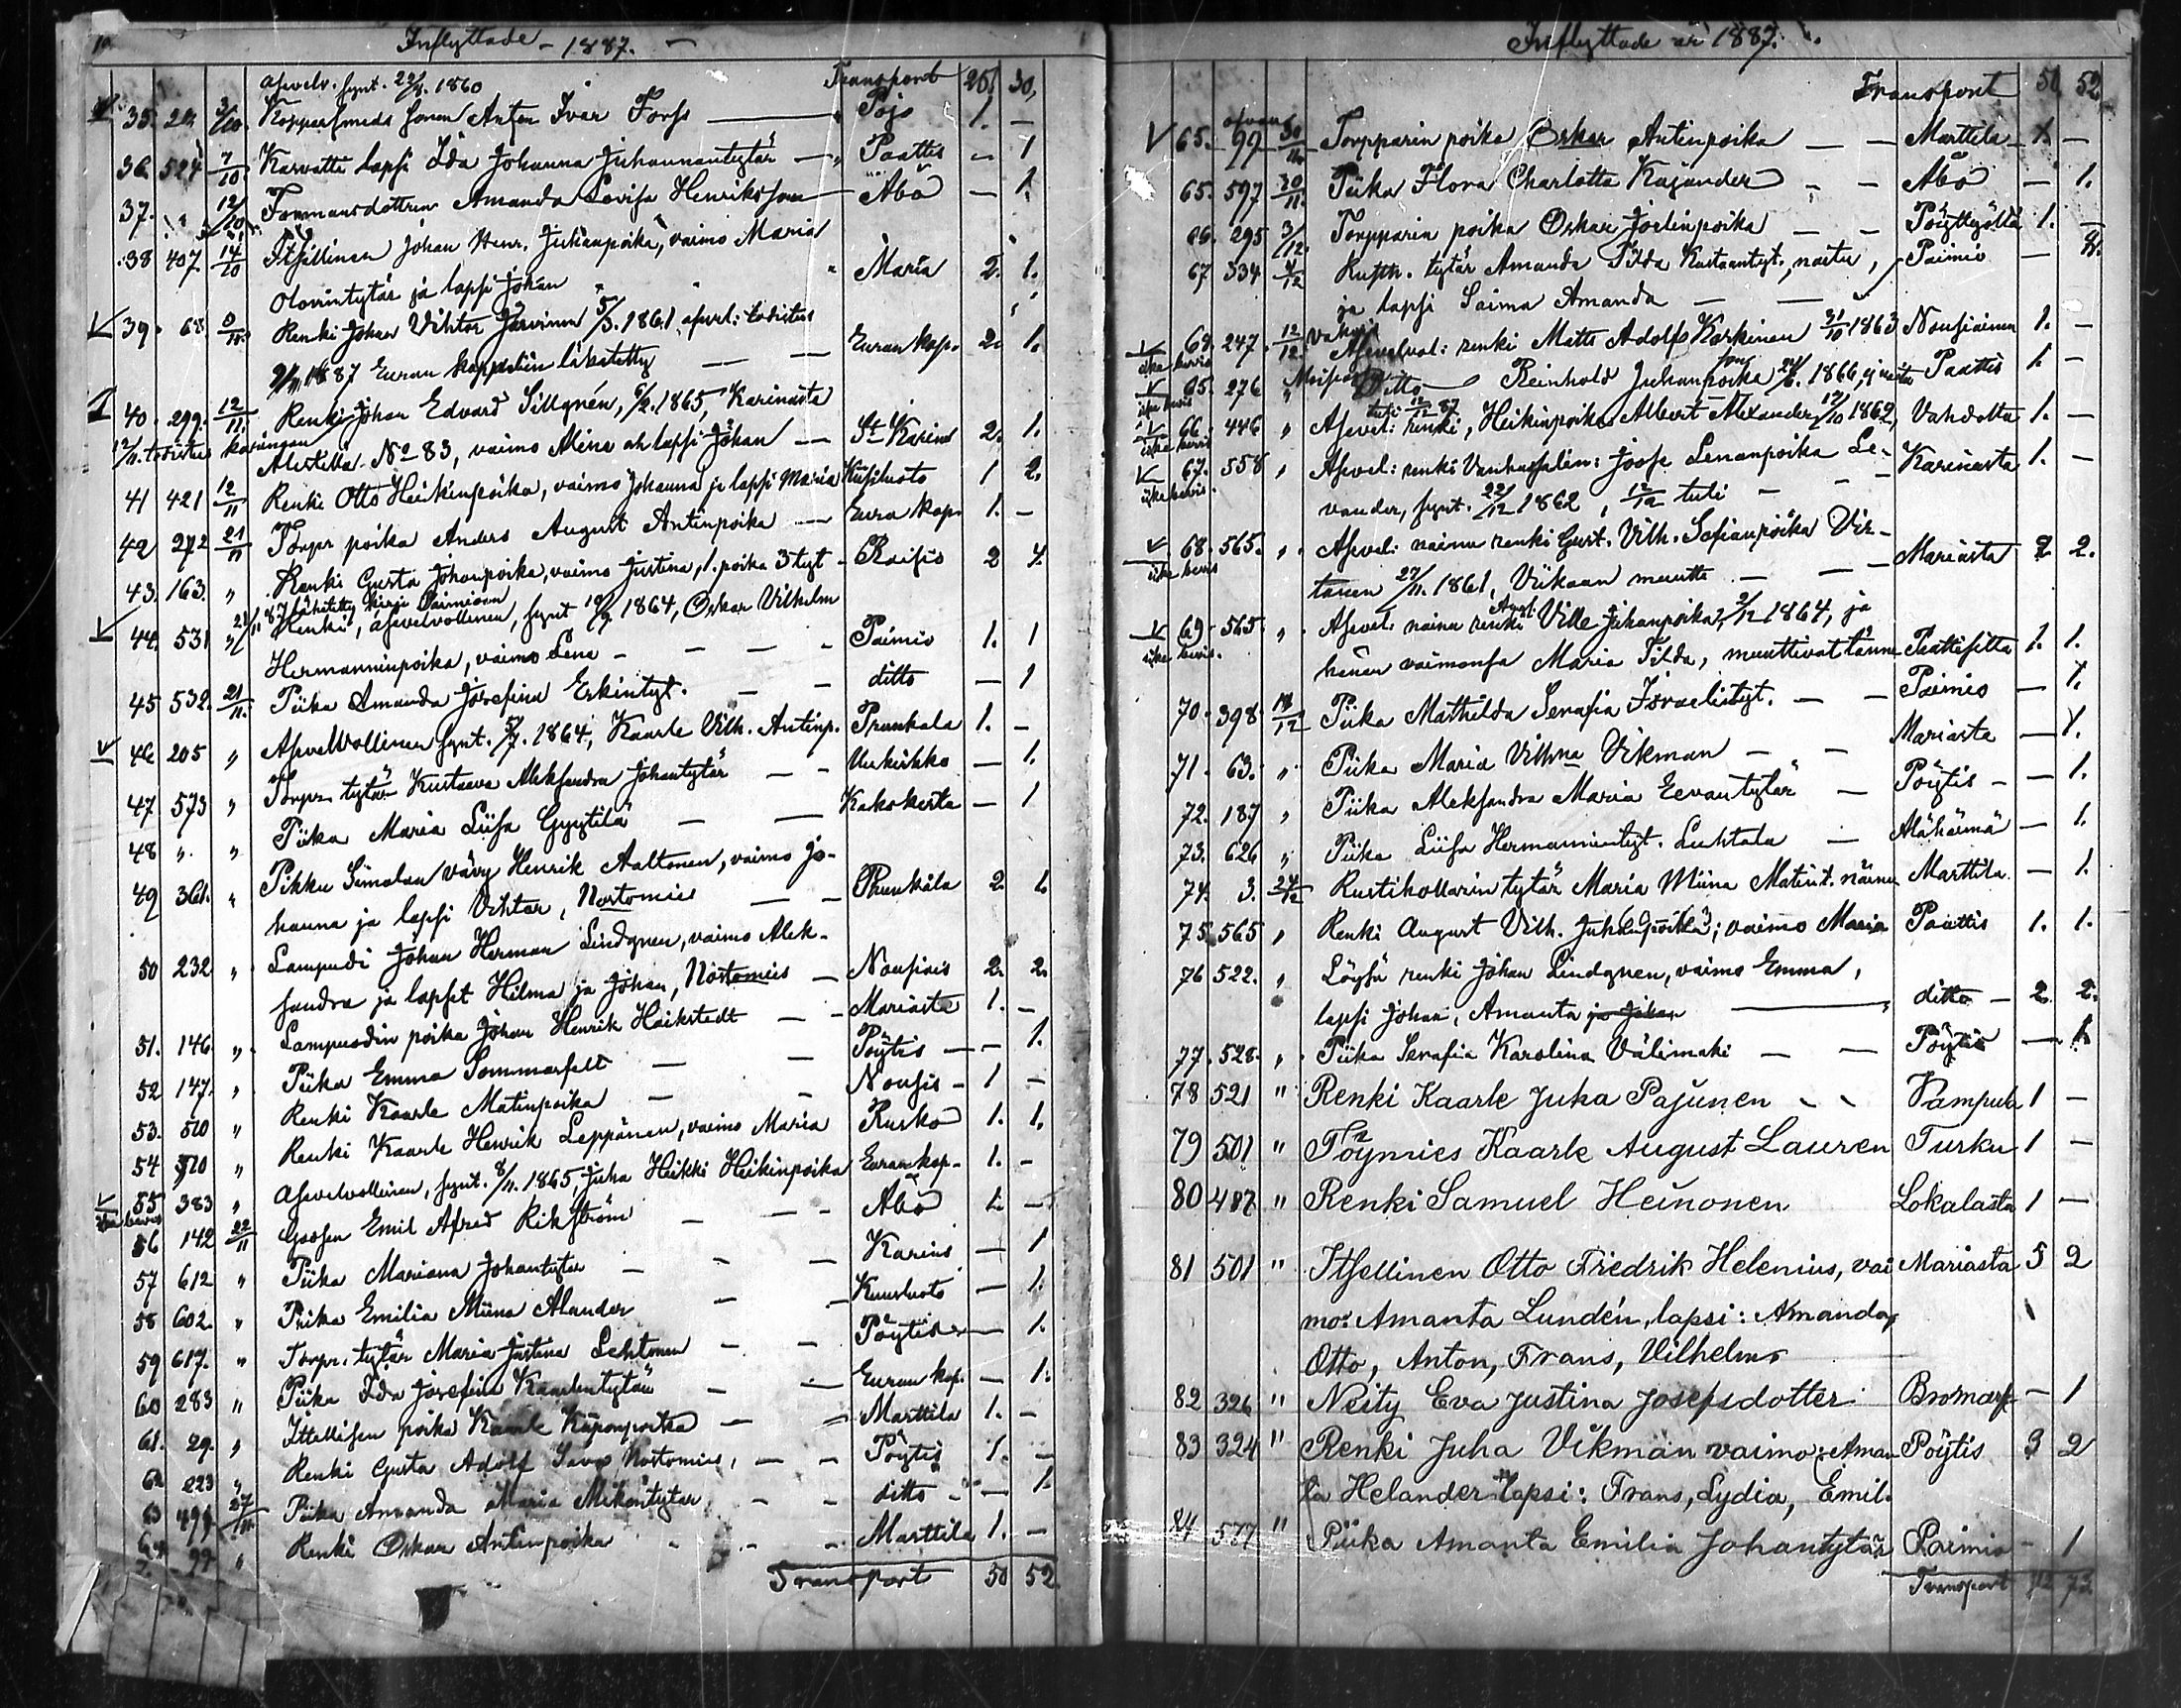 Inflyttade - 1887. -
Asevelv. synt. 22/8. 1860 Transport 26 30
35. 3/10 Kopparsmeds sonen Anton Ivar Forss Pojo 1. -
36. 524 7/10 Karvatti lapsi Ida Johanna Juhannantytär Paattis - 1
37. 12/10 Formansdottren Amanda Lovisa Henriksson Åbo - 1.
38 407. 14/10 Itsellinen Johan Henr. Juhanpoika, vaimo Maria
Olovintytär ja lapsi Johan " Maria 2. 1.
39. 68. Renki Johan Vihtor Järvinen 5/3. 1861, todistus
1887 Euran kappeliin lähetetty Euran kap. 2. 1.
40. 299. 12/11. Renki Johan Edvard Sillgrén, 6/2. 1865, Karinasta
12/11. todistus N:o 83, vaimo Mina ah lapsi Johan St Karins 2. 1.
41 421 12/11 Renki Otto Heikinpoika, vaimo Johanna ja lapsi Maria Kustluoto 1 2.
42 272 21/11 Torpr poika Anders August Antinpoika Eura kap. 1. -
43. 163. " Renki Gusta Johanpoika, vaimo Justina, 1. poika 3 tyt - Raisio 2 4.
21/11 87 lähetetty kirje Paimioon
44. 531 " Renki, asevelvollinen, synt 1864, Oskar Vilhelm
Hermanninpoika, vaimo Lena - - - - Paimio 1. 1
45 532. 21/11. Piika Amanda Josefina Erkintyt. - - ditto - 1
46 205 " Asevelvollinen synt. 5/7. 1864, Kaarle Vilh. Antinp. Prunkala 1. -
47 573 " Torpr. tytär Kustaava Aleksandra Johantytär - - Uukirkko - 1.
48 " " Piika Maria Liisa Gyytilä - - Kakskerta - 1
49 361. " Pikku Simolan vävy Henrik Aaltonen, vaimo Jo-
hanna ja lapsi Vihtor, Nostomies - - Prunkala 2. 1.
50 232 " Lampuodi Johan Herman Lindgren, vaimo Alek-
sandra ja lapset Hilma ja Johan, Nostomies - Nousiais 2. 2.
51. 146. " Lampuodin poika Johan Henrik Haikstedt - - Mariasta 1. -
52 147. " Piika Emma Sommarfelt - - Pöytis - - 1.
53. 510 " Renki Kaarle Matinpoika - - Nousis - 1 -
54 510 " Renki Kaarle Henrik Leppänen, vaimo Maria Rusko 1. 1.
55 383 " Asevelvollinen, synt. 8/11. 1865, Juha Heikki Heikinpoika Euran kap. 1. -
56 142 22/11 Gossen Emil Afred Rikström - - - Åbo 1. -
57 612 " Piika Mariana Johantytär - - - Karins - 1
58 602. " Piika Emilia Miina Alander - - Kuusluoto - 1.
59 617. " Torpr. tytär Maria Justina Lehtonen - - Pöytis - 1.
60 283 " Piika Ida Josefina Kaarlentytär - - Euran kap. - 1.
61. 29. " Ittellisen poika Kaarle - - Marttila 1. -
62 223 " Renki Gusta Adolf Nostomies, - - Pöytis 1. -
63 27/11. Piika Amanda Maria Mikontytär - - ditto - - 1.
99 " Renki Oskar Antinpoika - - - Marttila 1. -
Transport 50 52
Inflyttade år 1887.
Transport 50 52
65. 99 30/11. Torpparin poika Oskar Antinpoika - - Marttila 1. -
65. 597 30/11. Piika Flora Charlotta Kajander - - Åbo - 1.
66. 295 3/12. Torpparin poika Oskar Joelinpoika - - Pöyttyältä 1. -
67 534 Amanda Tilda Kustaantyt., naitu, Paimio -
ja lapsi Saima Amanda - -
247. 12/12. Asevelvol: renki Matts Adolfs Karkinen 31/10 1863 Nousiainen 1. -
65. 276 " Ditto Reinhold Juhanpoika 1866, Paattis 1 -
tuli 12/12 87
66. 446 " Asevel: renki, Heikinpoika Albert Alexander 12/10 1862, Vahdolta 1. -
67. 558 " Asevel: renki Joose Lenanpoika Le- Karinasta 1. -
vander, synt. 22/12 1862, 12/12 tuli - - -
68. 565. " Asevel: nainu renki Gust. Vilh. Sofianpoika Vir-
tanen 27/11. 1861, Viikaan muutti - - - Mariasta 2 2.
69 565 " Asevel: nainu renki Aug. Ville Juhanpoika, 1864, ja
hänen vaimonsa Maria Tilda, muuttivat tänne Paattisilta 1. 1.
70. 398. Piika Mathilda Serafia Israelintyt. - - Paimio - 1.
71. 63. " Piika Maria Vilhna Vikman - - Mariasta - 1.
72. 187 " Piika Aleksandra Maria Eevantytär - Pöytis - - 1.
73. 626 " Piika Liisa Hermannintyt. Luhtala - Alähärmä - 1.
74. 3. 24/12 Rustihollarin tytär Maria Miina Matint. nainu Marttila - 1.
75. 565 " Renki August Vilh. Juhanpoika; vaimo Maria Paattis 1. 1.
76 522. " Löysä renki Johan Lindgren, vaimo Emma,
lapsi Johan, Amanta ja Johan ditto - 2. 2.
77. 528. " Piika Serafia Karolina Välimaki - - Pöytis - 1.
78 521 " Renki Kaarle Juha Pajunen - - Vampula 1 -
79 501 " Töymies Kaarle August Lauren Turku 1 -
80 487 " Renki Samuel Heinonen Lokalasta 1 -
81 501 " Itsellinen Otto Fredrik Helenius, vai Mariasta 5 2
mo: Amanta Lundén, lapsi: Amanda,
Otto, Anton, Frans, Vilhelm
82 326 " Neity Eva Justina Josefsdotter Bromarf - 1
83 324 " Renki Juha Vikman vaimo: Aman Pöytis 3 2
ta Helander lapsi: Frans, Lydia, Emil.
84 577 " Piika Amanta Emilia Johantytär Paimio - 1
Transport 72 73